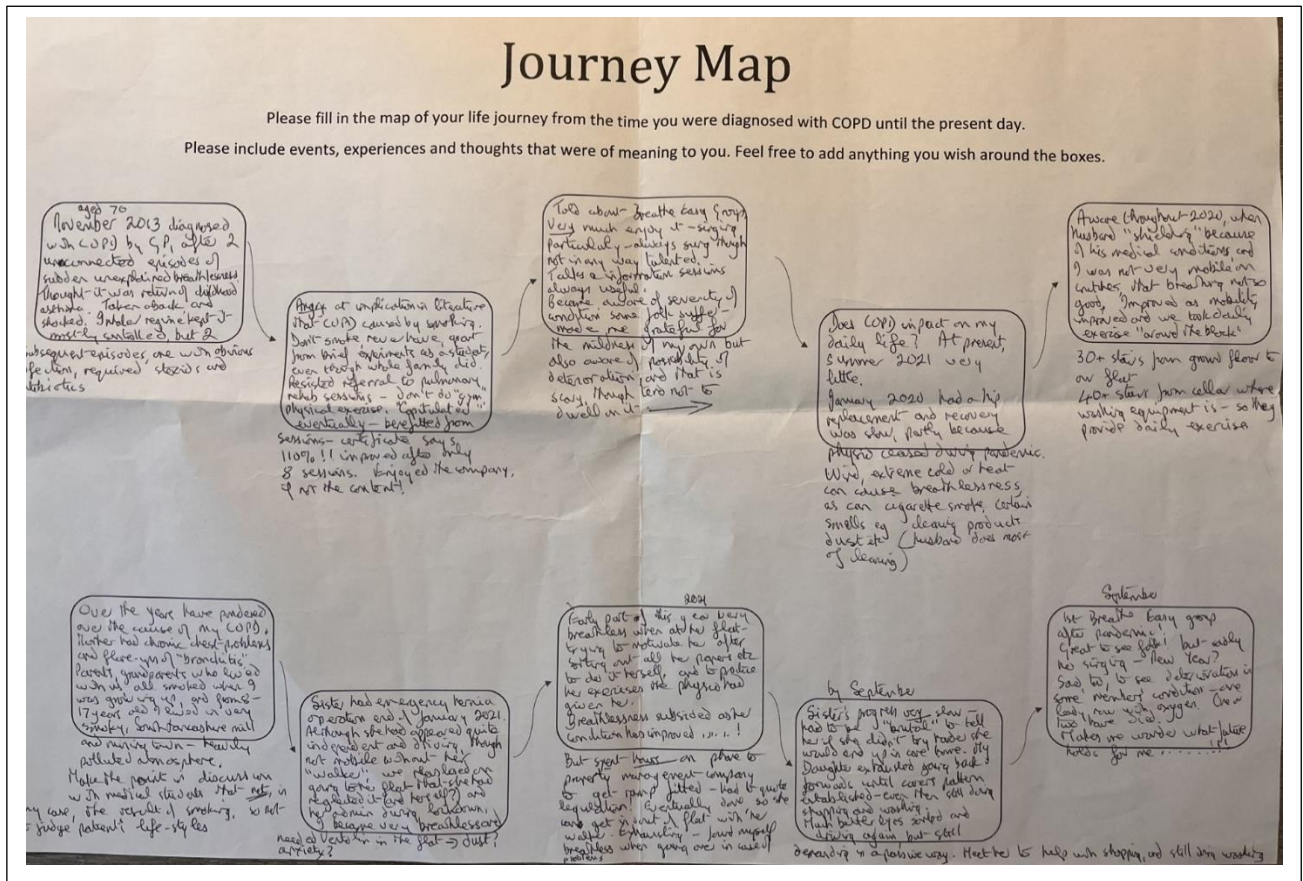 Journey Map
Please fill in the map of your life journey from the time you were diagnosed with COPD until the present day.
Please include events, experiences and thoughts that were of meaning to you. Feel free to add anything you wish around the boxes.
aged 70
November 2013 diagnosed
with COPD by GP, after 2
unconnected episodes of
sudden unexplained breathlessness.
Thought it was return of childhood
asthma. Taken aback and
shocked. Inhaler regime kept it
mostly controlled, but 2
subsequent episodes, one with obvious
infection, required steroids and
antibiotics
Angry at implication in literature
that COPD caused by smoking.
Don't smoke never have, apart
from brief experiments as a student,
even though whole family did.
Resisted referral to pulmonary
rehab sessions - don't do "gym"
physical exercise. Capitulated
eventually - benefitted from
sessions - certificate says
110% !! improved after only
8 sessions. Enjoyed the company,
if not the content!
Told about Breathe Easy Group
Very much enjoy it - singing
particularly - always sung though
not in any way talented.
Talks & information sessions
always useful.
Became aware of severity of
condition some folk suffer -
made me grateful for
the mildness of my own but
also aware of possibility of
deterioration, and that is
scary, though tend not to
dwell on it
Does COPD impact on my
daily life? At present,
summer 2021 very
little.
January 2020 had a hip
replacement and recovery
was slow, partly because
physio ceased during pandemic.
Wind, extreme cold or heat
can cause breathlessness,
as can cigarette smoke, certain
smells eg cleaning products
dust etc (husband does most
of cleaning)
Aware throughout 2020, when
husband "shielding" because
of his medical conditions and
I was not very mobile on
crutches, that breathing not so
good, Improved as mobility
improved and we took daily
exercise "around the block"
30+ stairs from ground floor to
our flat
40+ stairs from cellar where
washing equipment is - so they
provide daily exercise
Over the years have pondered
over the cause of my COPD.
Mother had chronic chest problems
and flare-ups of "bronchitis"
Parents, grandparents who lived
with us all smoked when I
was growing up, and from 8-
17 years old I lived in very
smoky, South Lancashire mill
and mining town - heavily
polluted atmosphere.
Make the point in discussion
with medical students that not, in
my case, the result of smoking, so not
to judge patient's life-styles
Sister had emergency hernia
operation end of January 2021.
Although she had appeared quite
independent and driving, though
not mobile without her
"walker", we realised on
going to her flat that she had
neglected it (and herself) and
her admin during lockdown.
I became very breathless and
need a Ventolin in the flat → dust?
anxiety?
2021
Early part of this year very
breathless when at her flat -
trying to motivate her after
sorting out all her papers etc
to do it herself, and to practice
her exercises the physio had
given her.
Breathlessness subsided as her
condition has improved !
But spent hours on phone to
property management company
to get ramp fitted - had to quote
legislation! Eventually done so she
could get in & out of flat with her
walker. Exhausting - found myself
breathless when going over in case of
problems
by September
Sister's progress very slow -
had to be "brutal" to tell
her if she didn't try harder she
would end up in care home. My
Daughter exhausted going back &
forwards until carers pattern
established - even then still doing
shopping and washing.
Much better eyes sorted and
driving again, but still
demanding in a passive way. Meet her to help with shopping, and still doing washing
September
1st Breathe Easy group
after pandemic!
Great to see folk! but sadly
no singing - New Year?
Sad too, to see deterioration in
some members' condition - one
lady now with oxygen. One or
two have died.
Makes me wonder what future
holds for me ..........!?